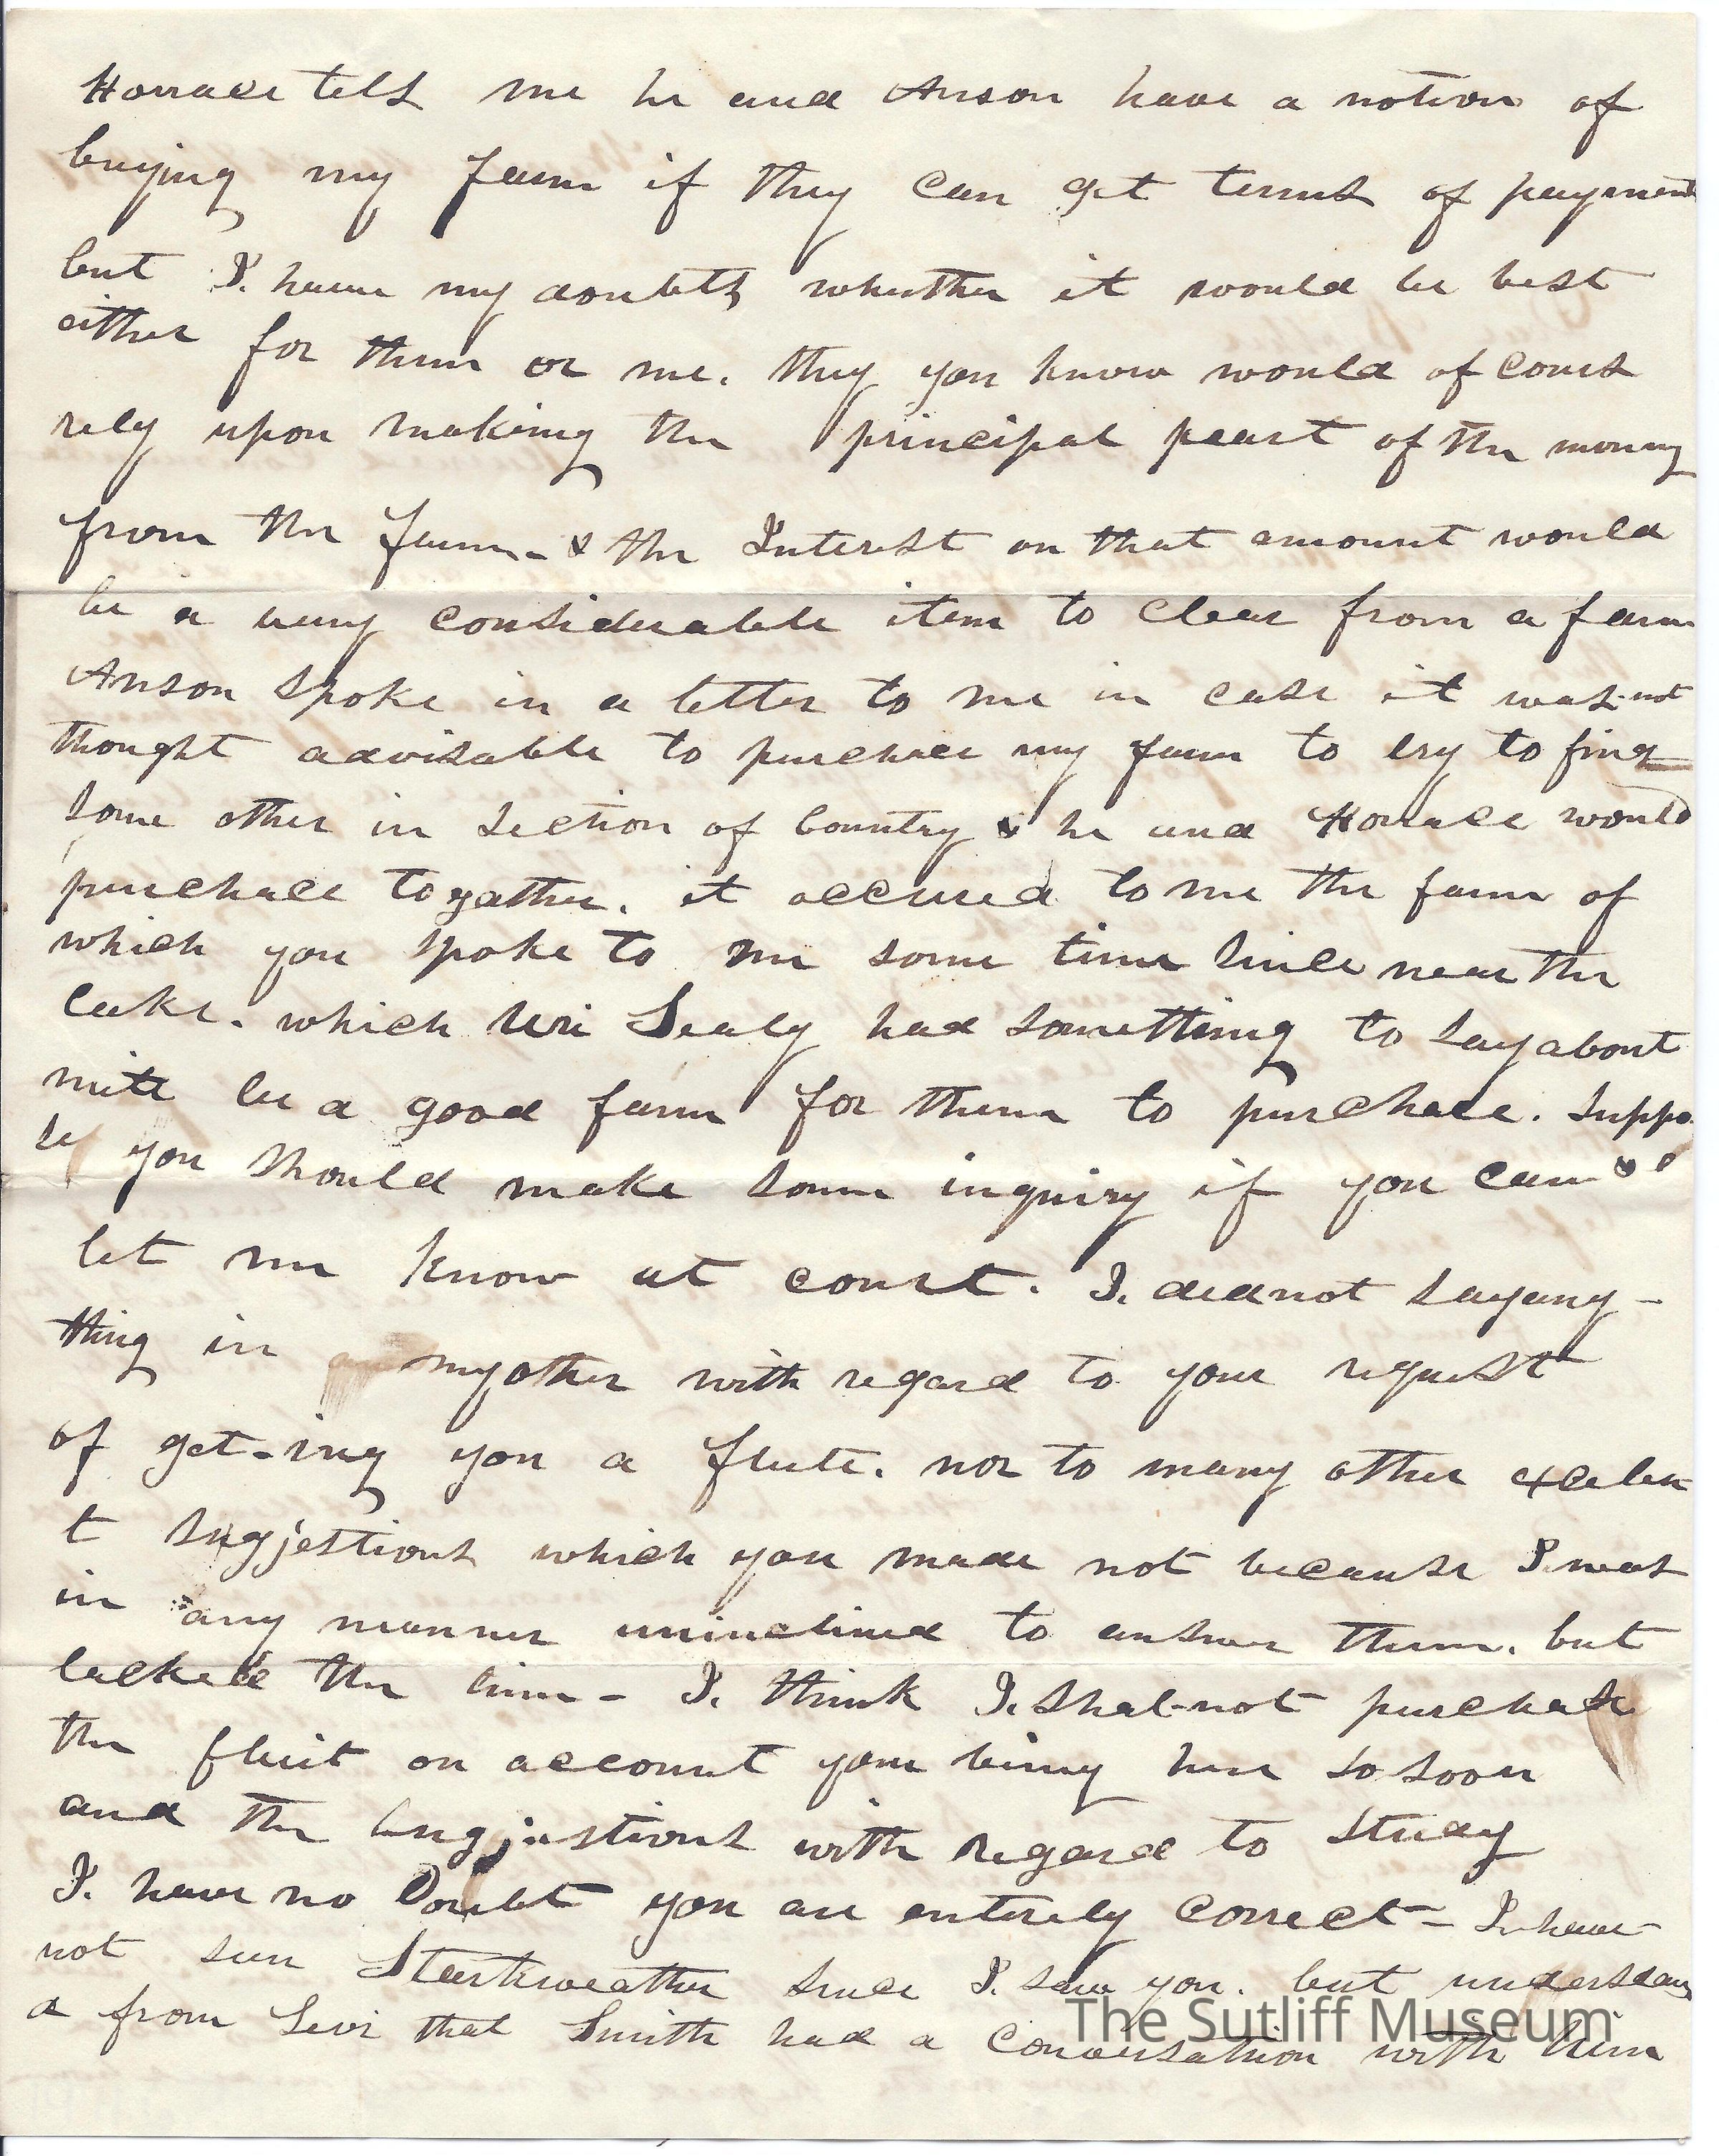 Horrace tells me he and Anson have a notion of
buying my farm if they can get terms of payment
but I. have my doubths whether it would be best
either for them or me. they you know would of cours
rely upon making the principal peart of the money
from the farm - & the Interest on that amount would
be a very considerable item to clear from a farm
Anson spoke in a letter to me in case it was not
thought advisable to purchace my farm to try to find
some other in section of Country & he and Horrace would
purchace togather. it occured to me the farm of
which you spoke to me some time since near the
lake. which Uri Sealy had something to say about
mite be a good farm for them to purchace. Suppo
se you should make some inquiry if you can &
let me know at court. I. did not say any -
thing in my other with regard to your request
of get-ing you a flute. nor to many other excelen
t sugjestions which you made not because I was
in any manner uninclined to answer them. but
lacked the time - I. think I. shal-not purchase
the fluit on account your being here so soon
and the sugjustions with regard to study
I. have no Doubt you are entirely correct - I have
not seen Starkweather since I. saw you. but understan
d from Levi that Smith had a conversation with him
The Sutliff Museum